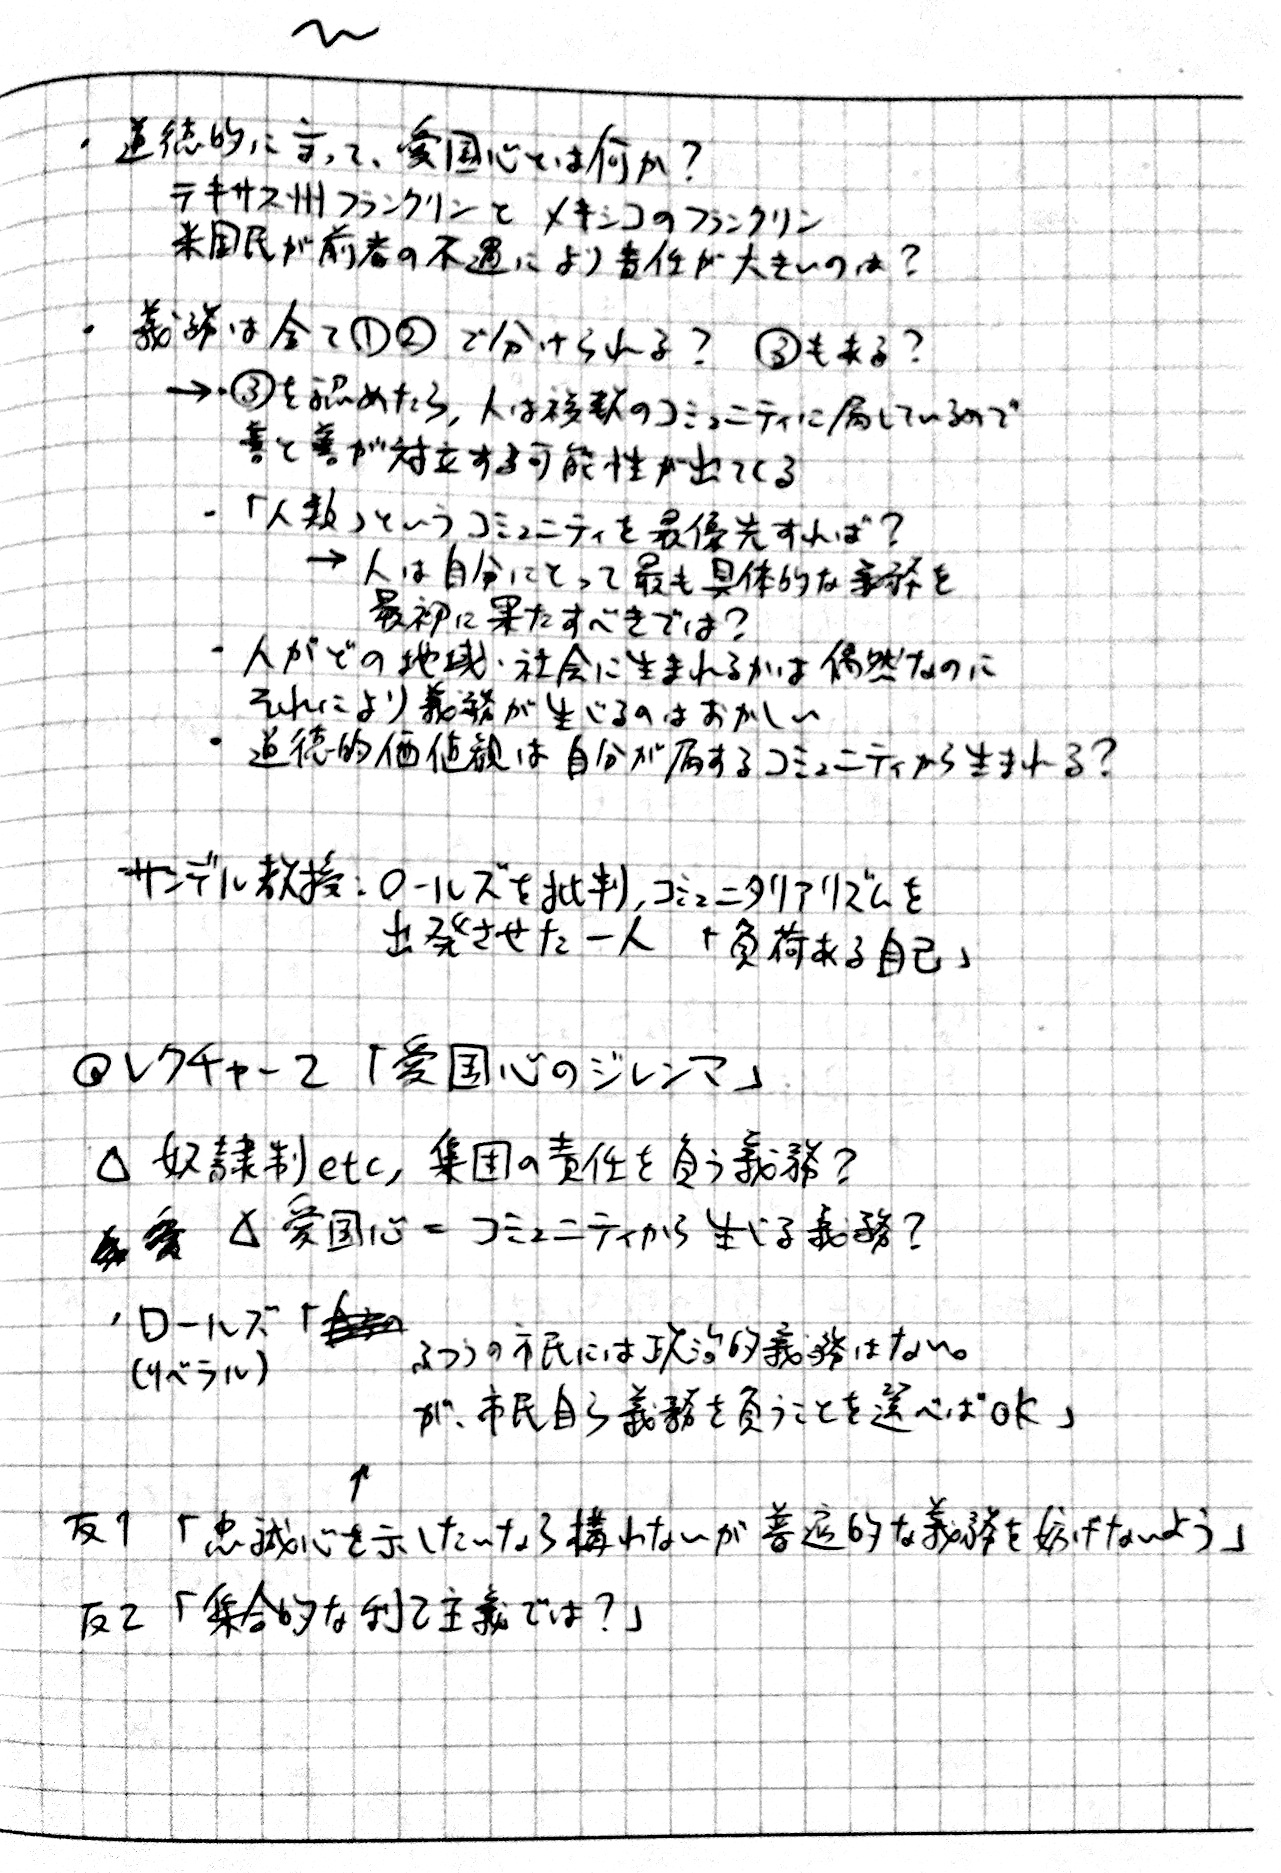 ・道徳的に言って、愛国心とは何か?
テキサス州フランクリンと メキシコのフランクリン
米国民が前者の不遇により責任が大きいのは?
・義務は全て①②で分けられる? ③も来る?
→・③を認めたら, 人は複数のコミュニティに属しているので
善と善が対立する可能性が出てくる
・「人類」というコミュニティを最優先すれば?
→ 人は自分にとって最も具体的な義務を
最初に果たすべきでは?
・人がどの地域・社会に生まれるかは偶然なのに
それにより義務が生じるのはおかしい
・道徳的価値観は自分が属するコミュニティから生まれる?
サンデル教授:ロールズを批判, コミュニタリアリズムを
出発させた一人 「負荷ある自己」
◎レクチャー2 「愛国心のジレンマ」
△ 奴隷制etc, 集団の責任を負う義務?
△ 愛国心 = コミュニティから生じる義務?
・ロールズ「
(リベラル)
ふつうの市民には政治的義務はない。
が、市民自ら義務を負うことを選べばOK」
↑
反1 「忠誠心を示したいなら構わないが普遍的な義務を妨げないよう」
反2 「集合的な利己主義では?」